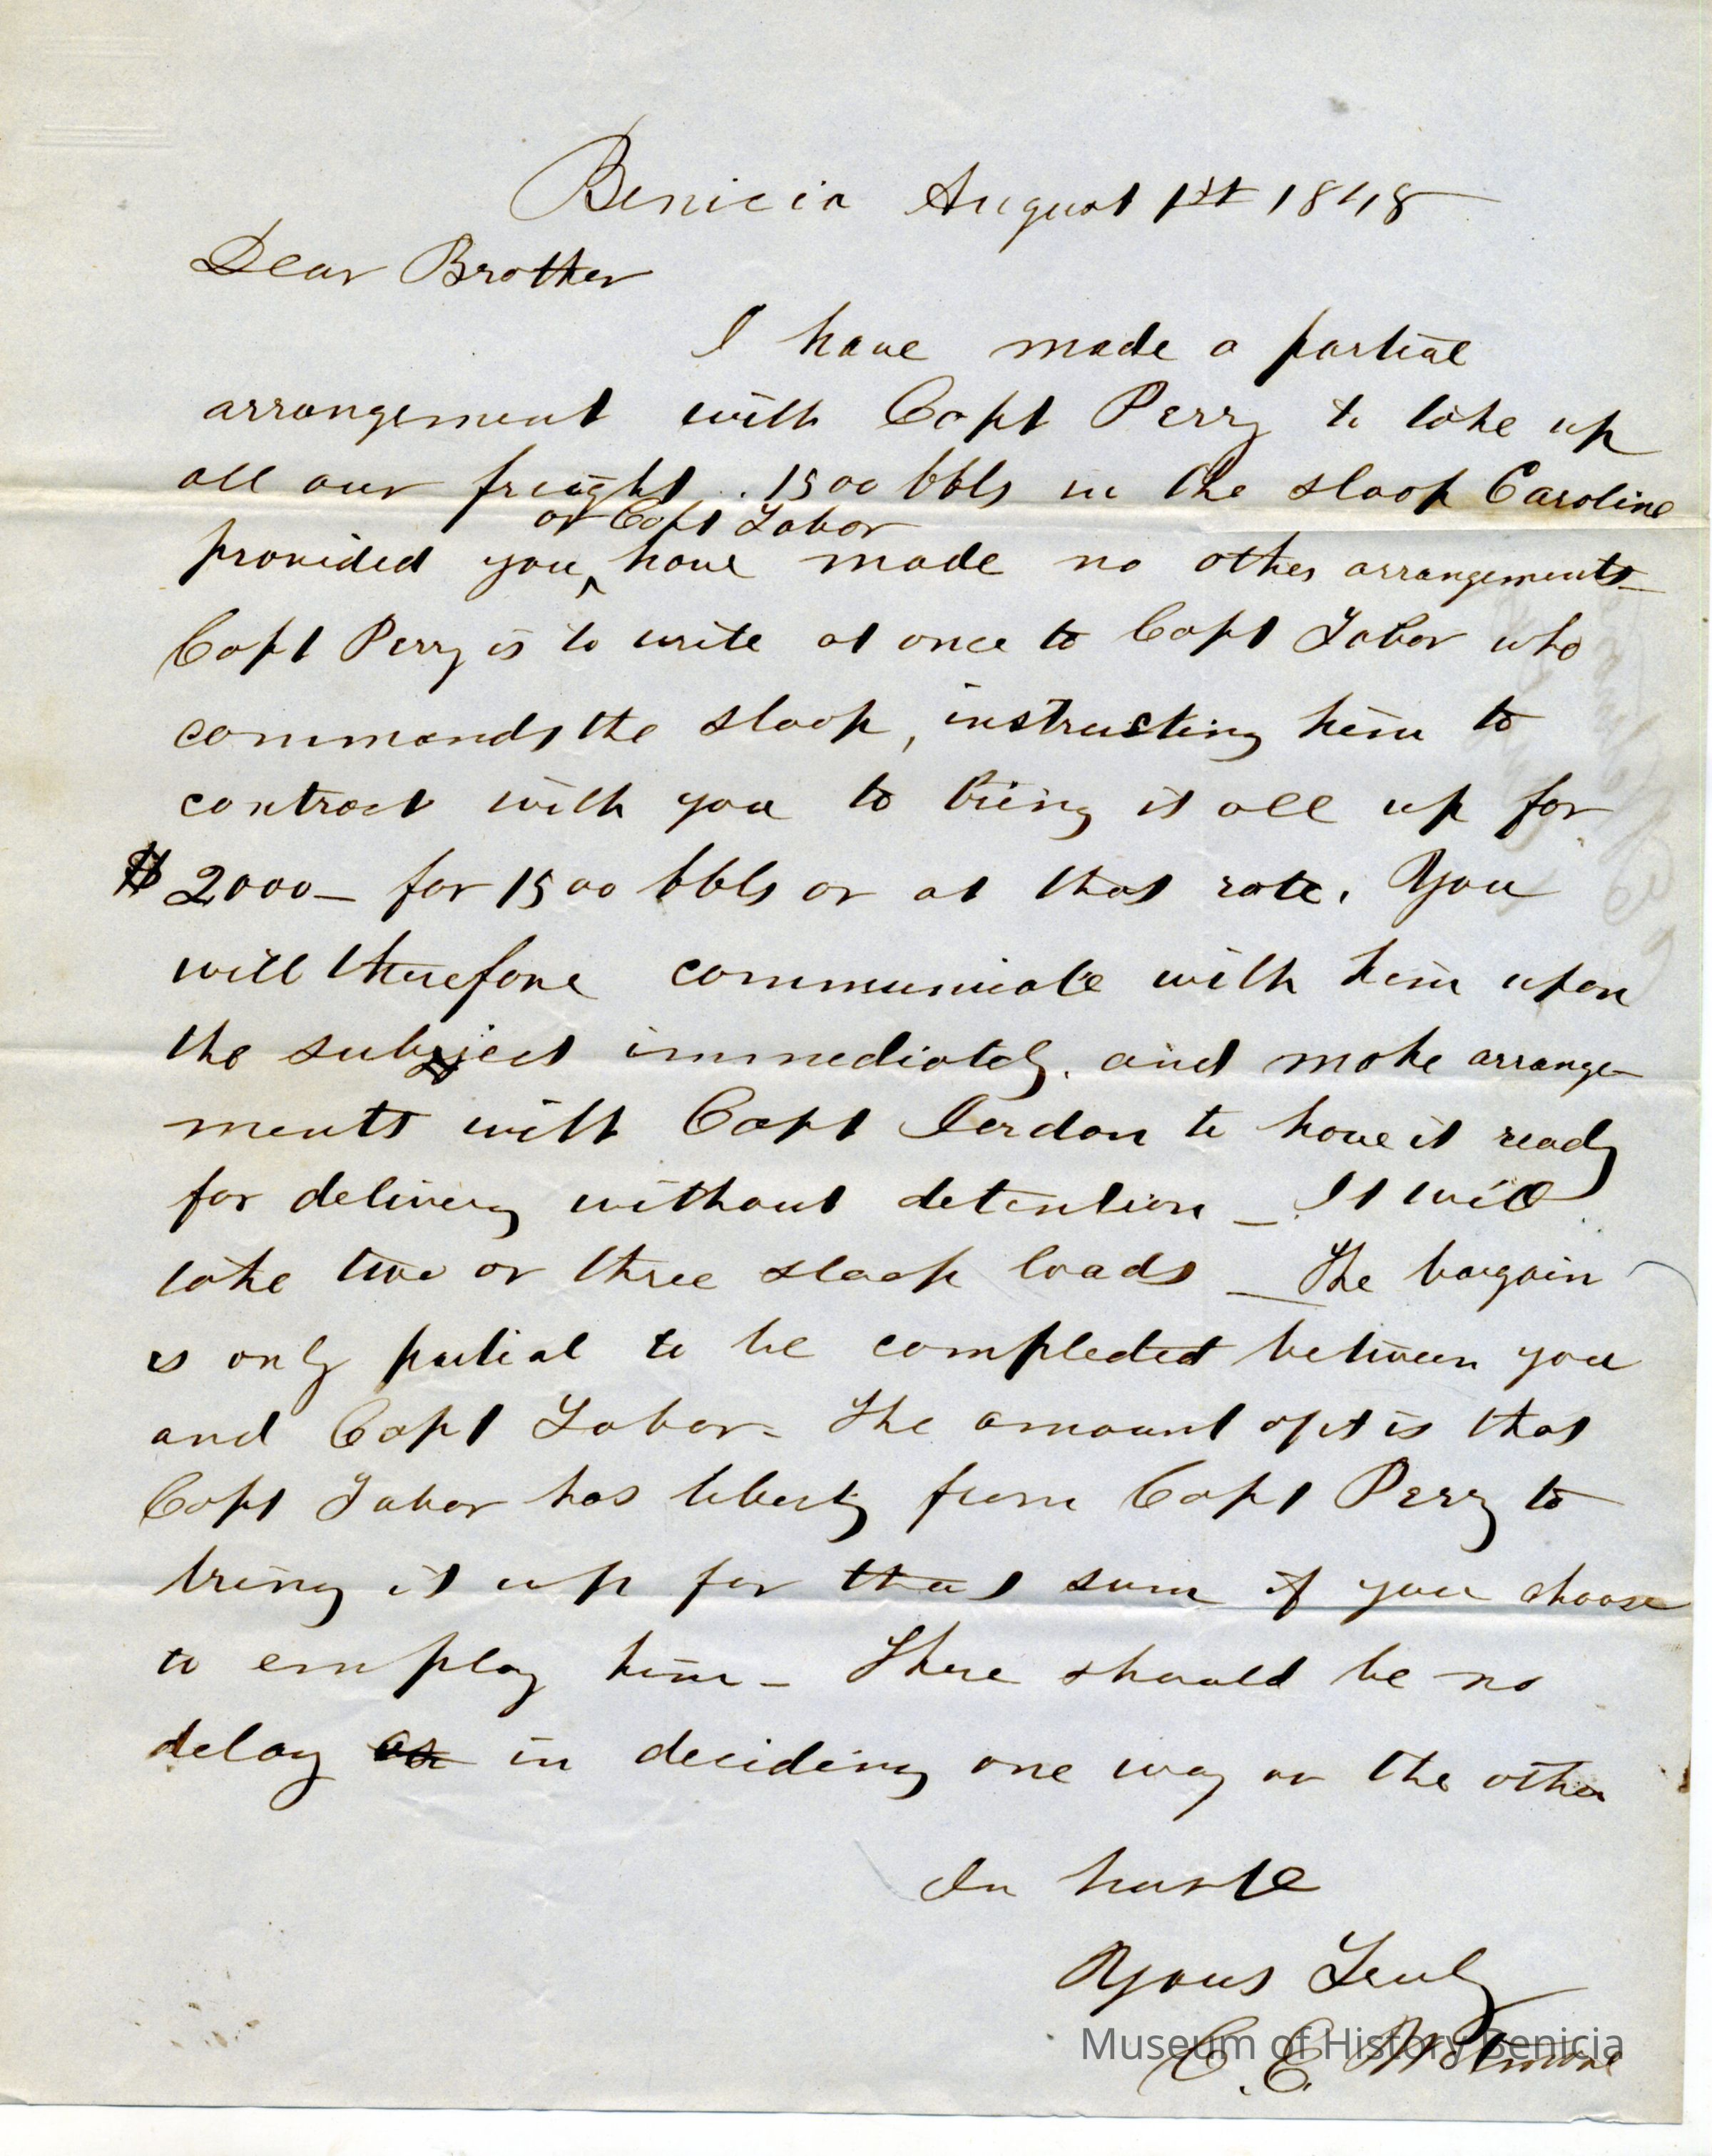 Benicia August 1st 1848
Dear Brother
I have made a partial
arrangement with Capt Perry to take up
all our freight . 1500 bbls in the sloop Caroline
or Capt Tabor
provided you ^ have made no other arrangements
Capt Perry is to write at once to Capt Tabor who
commands the sloop, instructing him to
contract with you to bring it all up for
$2000 – for 1500 bbls or at that rate. You
will therefore communicate with him upon
the subject immediately. and make arrange-
ments with Capt to have it ready
for delivery without detention – It will
take two or three sloop loads – The bargain
is only partial to be completed between you
and Capt Tabor – The amount of it is that
Capt Tabor has liberty from Capt Perry to
bring it up for that sum if you choose
to employ him – There should be no
delay in deciding one way or the other
In haste
Yours Truly
C. E. Wetmore
Museum of History Benicia